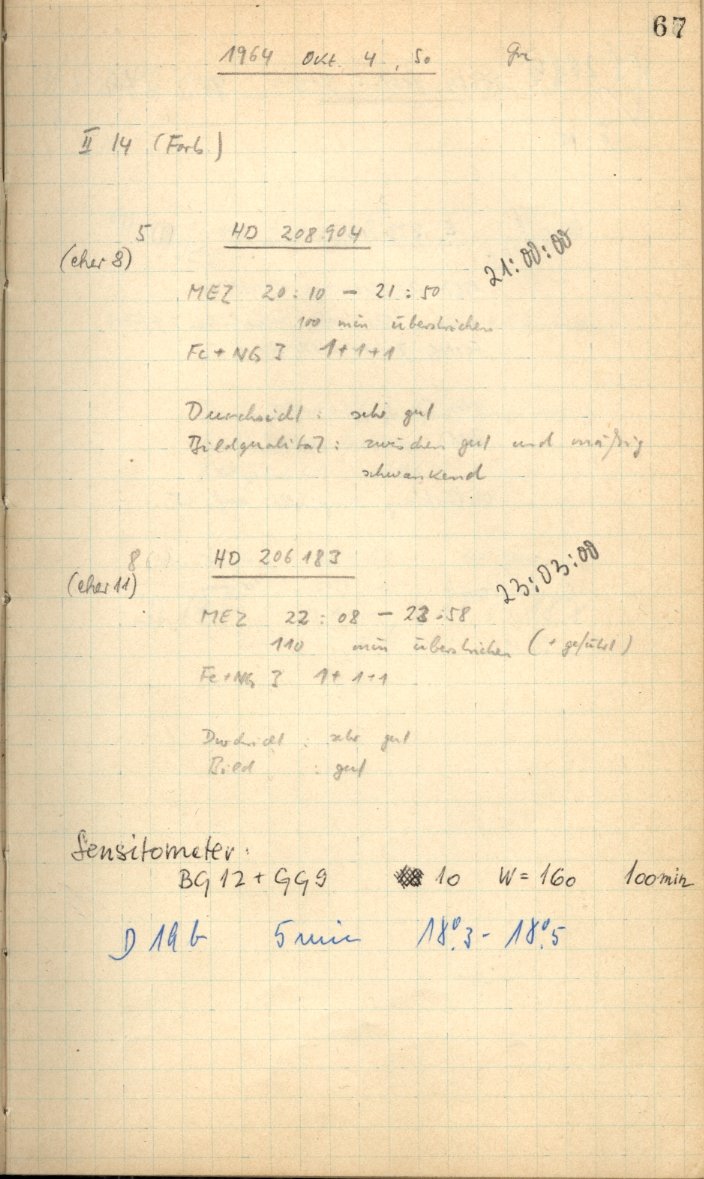 67
1964 Okt. 4, 50
II 14 (Farb)
5 HD 208904
(eher 8)
21:00:00
MEZ 20:10 - 21:50
100 min überstrichen
Fe + NG 3 1+1+1
Durchsicht: sehr gut
Bildqualität: zwischen gut und mäßig
schwankend
8 HD 206183
(eher 11)
23:03:00
MEZ 22:08 - 23:58
110 min überstrichen (+ geführt)
Fe + NG 3 1+1+1
Durchsicht: sehr gut
Bild : gut
Sensitometer:
BG 12 + GG 9 10 W = 160 100 min
D 19 b 5 min 18°.3 - 18°.5